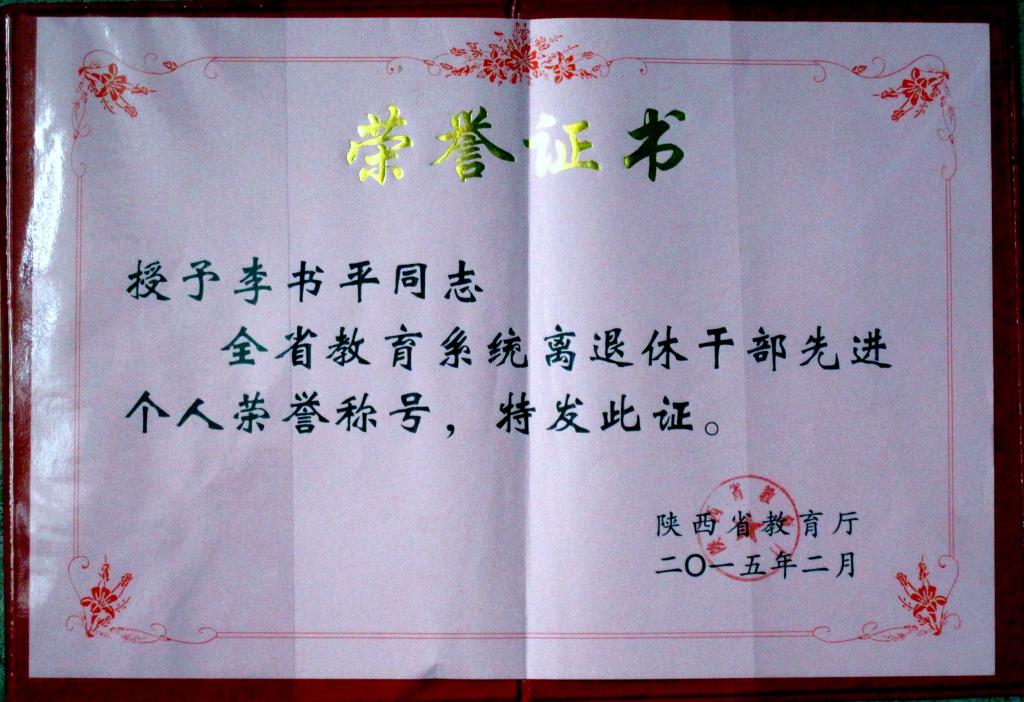 荣誉证书
授予李书平同志
全省教育系统离退休干部先进
个人荣誉称号，特发此证。
陕西省教育厅
二〇一五年二月